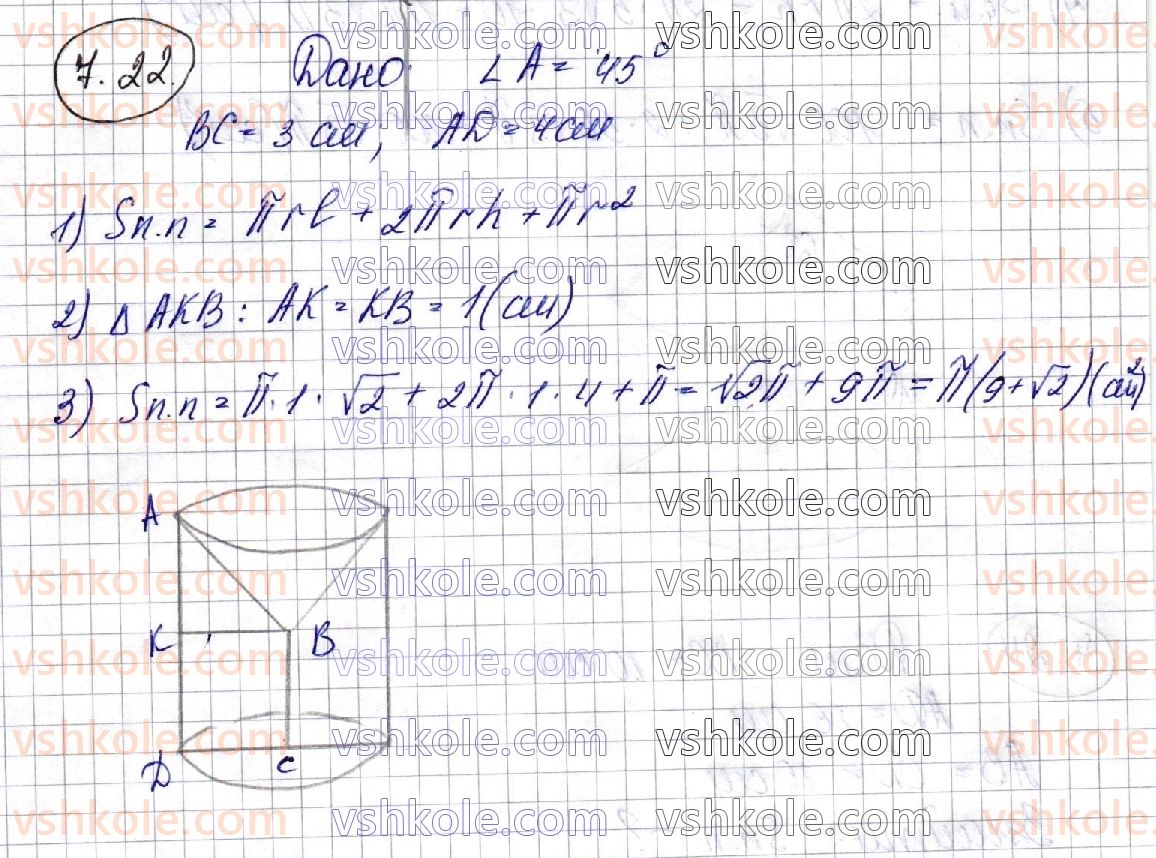 7.22.
Дано: ∠A = 45°
BC = 3 см, AD = 4 см
1) Sп.п = πrl + 2πrh + πr²
2) Δ AKB: AK = KB = 1 (см)
3) Sп.п = π · 1 · √2 + 2π · 1 · 4 + π = √2π + 9π = π(9+√2) (см²)
A
K B
D C
vshkole.com